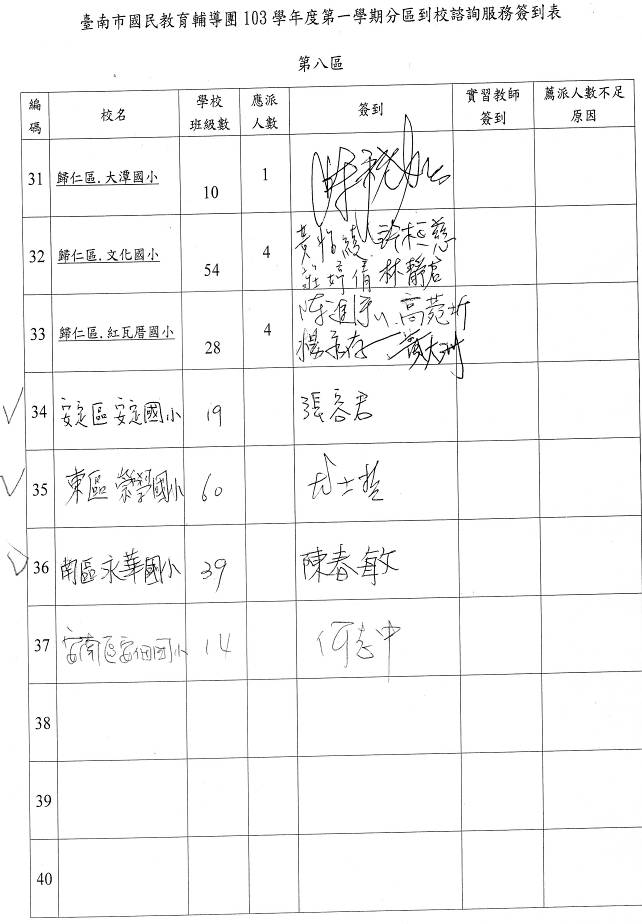 臺南市國民教育輔導團 103 學年度第一學期分區到校諮詢服務簽到表
第八區
編碼 校名 學校班級數 應派人數 簽到 實習教師簽到 薦派人數不足原因
31 歸仁區.大潭國小 10 1
32 歸仁區.文化國小 54 4 黃怡綾 許桓慈
莊婷倩 林靜君
33 歸仁區.紅瓦厝國小 28 4 高菀圻
34 安定區安定國小 19 張容君
35 東區崇學國小 60
36 南區永華國小 39 陳春敏
37 安南區安佃國小 14 何志中
38
39
40